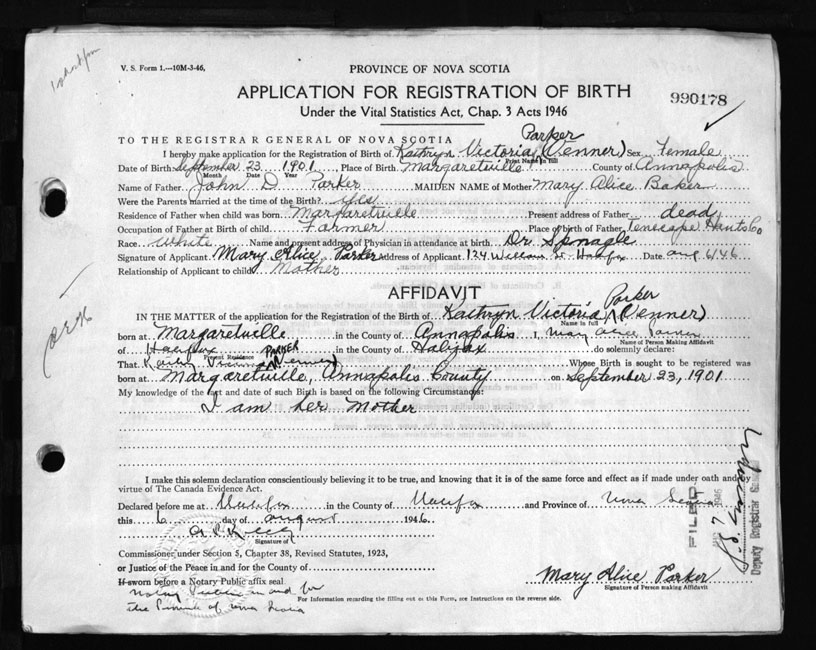 V. S. Form 1.—10M-3-46,
PROVINCE OF NOVA SCOTIA
APPLICATION FOR REGISTRATION OF BIRTH
990178
Under the Vital Statistics Act, Chap. 3 Acts 1946
TO THE REGISTRAR GENERAL OF NOVA SCOTIA
Parker
I hereby make application for the Registration of Birth of Kathryn Victoria (Venner) Sex Female
Print Name in full
Date of Birth September 23 1901 Place of Birth Margaretville County of Annapolis
Month Date Year
Name of Father John D Parker MAIDEN NAME of Mother Mary Alice Baker
Were the Parents married at the time of the Birth? yes
Residence of Father when child was born Margaretville Present address of Father dead
Occupation of Father at Birth of Child Farmer Place of birth of Father Tenecape Hants Co
Race White Name and present address of Physician in attendance at birth Dr. Sponagle
Signature of Applicant Mary Alice Parker Address of Applicant 134 William St. Halifax Date Aug 6/46
Relationship of Applicant to child Mother
AFFIDAVIT
Parker
IN THE MATTER of the application for the Registration of the Birth of Kathryn Victoria (Venner)
Name in full
born at Margaretville in the County of Annapolis I, Mary Alice Parker
Name of Person Making Affidavit
of Halifax in the County of Halifax do solemnly declare:
Present Residence
PARKER
That Venner Whose Birth is sought to be registered was
born at Margaretville, Annapolis County on September 23, 1901
My knowledge of the fact and date of such Birth is based on the following Circumstances:
I am her Mother
I make this solemn declaration conscientiously believing it to be true, and knowing that it is of the same force and effect as if made under oath and by
virtue of The Canada Evidence Act.
Declared before me at Halifax in the County of Halifax and Province of Nova Scotia
this 6 day of August 1946
Signature of
Commissioner under Section 5, Chapter 38, Revised Statutes, 1923,
or Justice of the Peace in and for the County of
If sworn before a Notary Public affix seal
Notary Public in and for
the Province of Nova Scotia
Mary Alice Parker
Signature of Person making Affidavit
For Information regarding the filling out of this Form, see Instructions on the reverse side.
FILED
7 1946
Deputy Registrar General